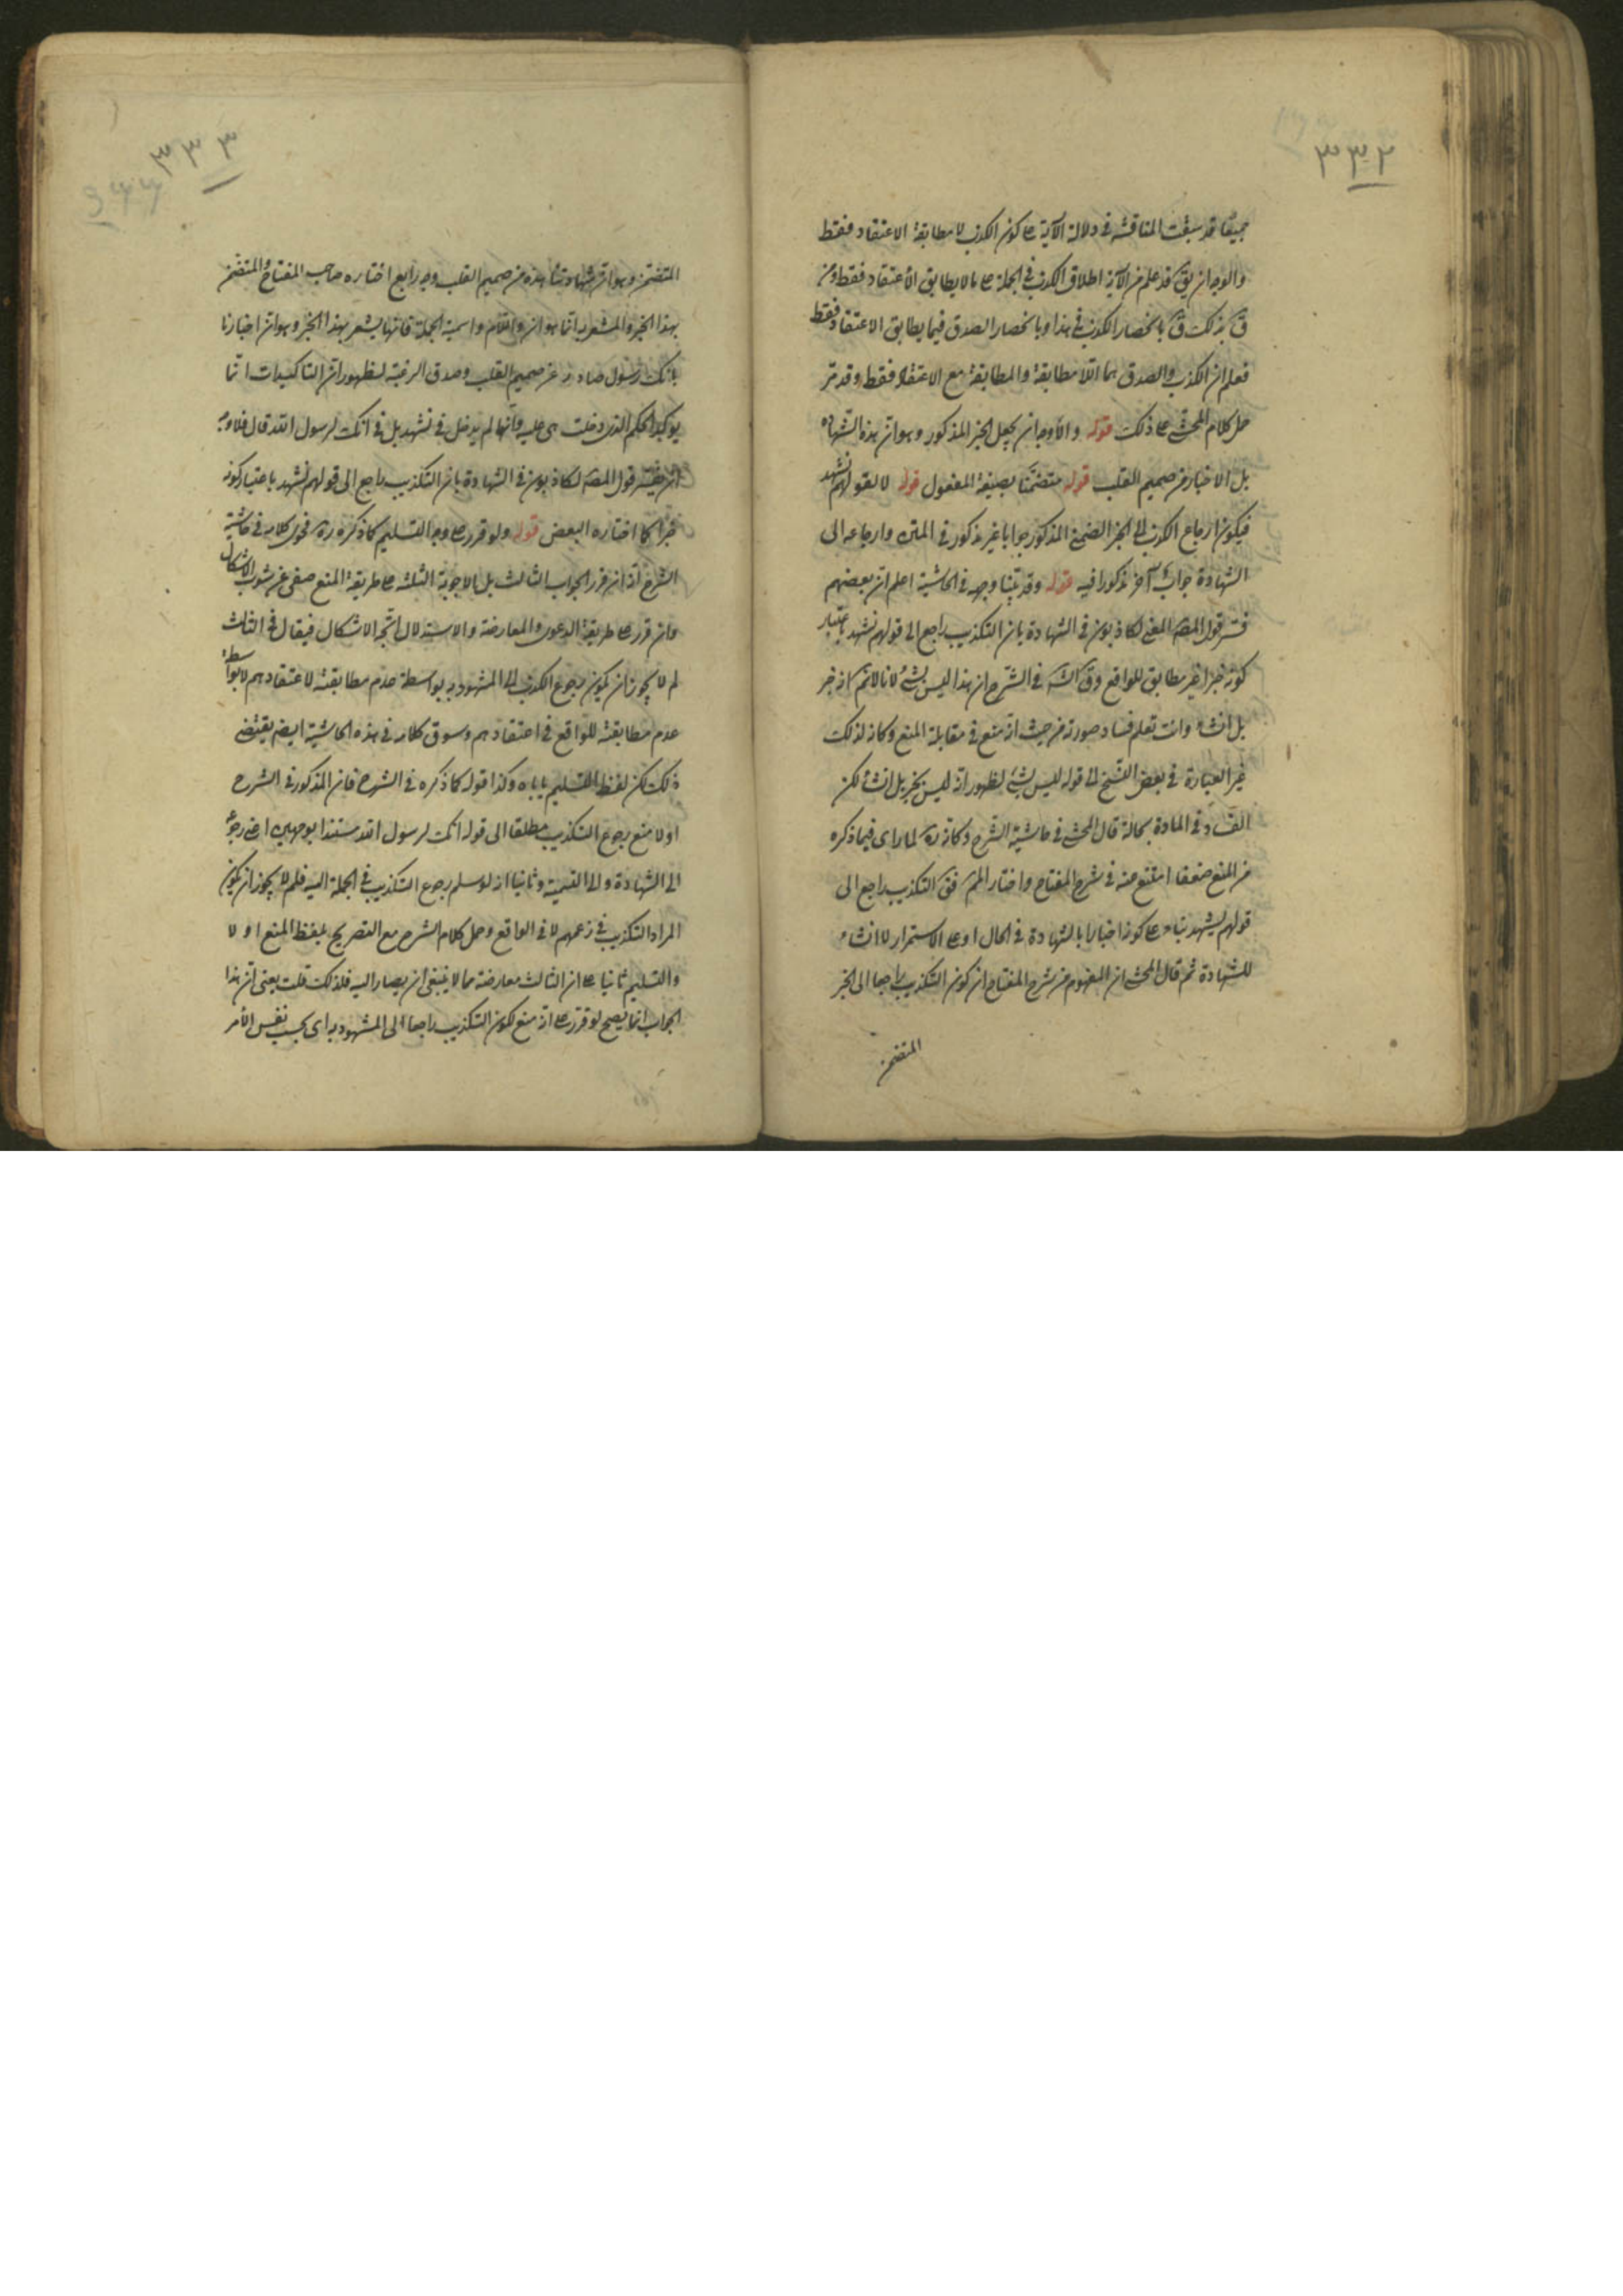 ٣٣٢
جميعا قد سبقت المناقشة في دلالة الآية على كون الكذب لا مطابقة الاعتقاد فقط
والوجه ان يق قد علم من الآية اطلاق الكذب في الجملة على ما لا يطابق الاعتقاد فقط ومن
ق بذلك ق بانحصار الكذب في هذا وبانحصار الصدق فيما يطابق الاعتقاد فقط
فعلم ان الكذب والصدق هما اللا مطابقة والمطابقة مع الاعتقاد فقط وقد مر
حل كلام المحشي على ذلك قوله والاوجه ان يجعل الخبر المذكور وهو ان هذه الشهادة
بل الاخبار من صميم القلب قوله متضمنا بصيغة المفعول قوله لا لقولهم نشهد
فيكون ارجاع الكذب الى الخبر الضمني المذكور جوابا غير مذكور في المتن وارجاعه الى
الشهادة جواب آخر مذكورا فيه قوله وقد بينا وجهه في الحاشية اعلم ان بعضهم
فسر قول المص المعنى لكاذبون في الشهادة بان التكذيب راجع الى قولهم نشهد باعتبار
كونه خبرا غير مطابق للواقع وق الش في الشرح ان هذا ليس بشئ لانا لا نم انه خبر
بل انشاء وانت تعلم فساد صورته من حيث انه منع في مقابلة المنع وكانه لذلك
غير العبارة في بعض النسخ الى قوله ليس بشئ لظهور انه ليس بخبر بل انشاء لكن
الفساد في المادة بحاله قال المحشي في حاشية الشرح وكانه ره لما رأى فيما ذكره
من المنع ضعفا امتنع عنه في شرح المفتاح واختار المم فق التكذيب راجع الى
قولهم نشهد بناء على كونه اخبارا بالشهادة في الحال او على الاستمرار لا انشاء
للشهادة ثم قال المحشي ان المفهوم من شرح المفتاح ان كون التكذيب راجعا الى الخبر
المتضمن
٣٣٣
المتضمن وهو ان شهادتنا هذه من صميم القلب وجه رابع اختاره صاحب المفتاح والمتضمن
بهذا الخبر والمشعر به انما هو ان واللام واسمية الجملة فانها يشعر بهذا الخبر وهو ان اخبارنا
بانك رسول صادر عن صميم القلب وصدق الرغبة لظهور ان التاكيدات انما
يؤكد الحكم الذي دخلت هي عليه وانها لم يدخل في نشهد بل في انك لرسول الله قال فلاوجه
ان يفسر قول المص لكاذبون في الشهادة بان التكذيب راجع الى قولهم نشهد باعتبار كونه
خبرا كما اختاره البعض قوله ولو قرر على وجه التسليم كما ذكره ره فحوى كلامه في حاشية
الشرح انه ان قرر الجواب الثالث بل الاجوبة الثلثة على طريقة المنع صفى عن شوب الاشكال
وان قرر على طريقة الدعوى والمعارضة والاستدلال اتجه الاشكال فيقال في الثالث
لم لا يجوز ان يكون رجوع الكذب الى المشهود به بواسطة عدم مطابقته لاعتقادهم لا بواسطة
عدم مطابقته للواقع في اعتقادهم وسوق كلامه في هذه الحاشية ايضم يقتضى
ذلك لكن لفظ التسليم ياباه وكذا قوله كما ذكره في الشرح فان المذكور في الشرح
اولا منع رجوع التكذيب مطلقا الى قوله انك لرسول الله مستندا بوجهين اعني رجوعه
الى الشهادة والى التسمية وثانيا انه لو سلم رجوع التكذيب في الجملة اليه فلم لا يجوز ان يكون
المراد التكذيب في زعمهم لا في الواقع وحمل كلام الشرح مع التصريح بلفظ المنع اولا
والتسليم ثانيا على ان الثالث معارضة مما لا ينبغي ان يصار اليه فلذلك قلت يعني ان هذا
الجواب انما يصح لو قرر على انه منع لكون التكذيب راجعا الى المشهود به اى بحسب نفس الأمر